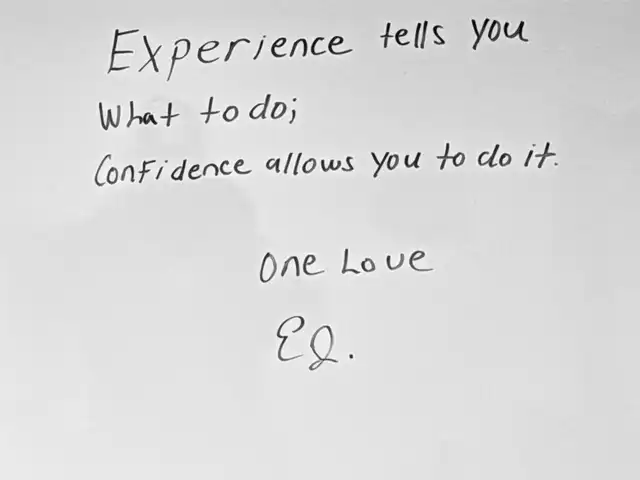 Experience tells you
What to do;
Confidence allows you to do it.
One Love
EQ.